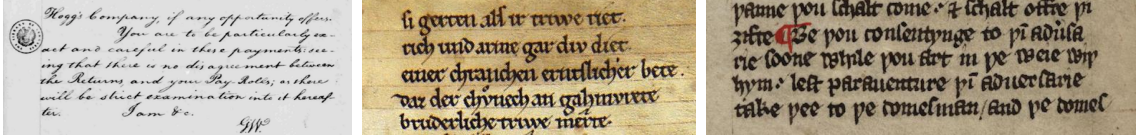 Hogg's Company, if any opportunity offers.
You are to be particularly ex-
act and careful in these payments: see-
ing that there is no disagreement between
the Returns, and your Pay-Rolls; as there
will be strict examination into it hereaf-
ter. I am &c.
GW
si gerten als ir triwe riet.
rich und arme gar div diet.
einer chranchen ernstlicher bete.
Dar der chvnech an gahmvrete
bruderliche triwe merte.
þanne þou schalt come · & schalt offre þi
ȝifte Be þou consentynge to þi adusa
rie soone while þou art in þe weie wiþ
hym · lest parauenture þi aduersarie
take þee to þe domesman / and þe domes